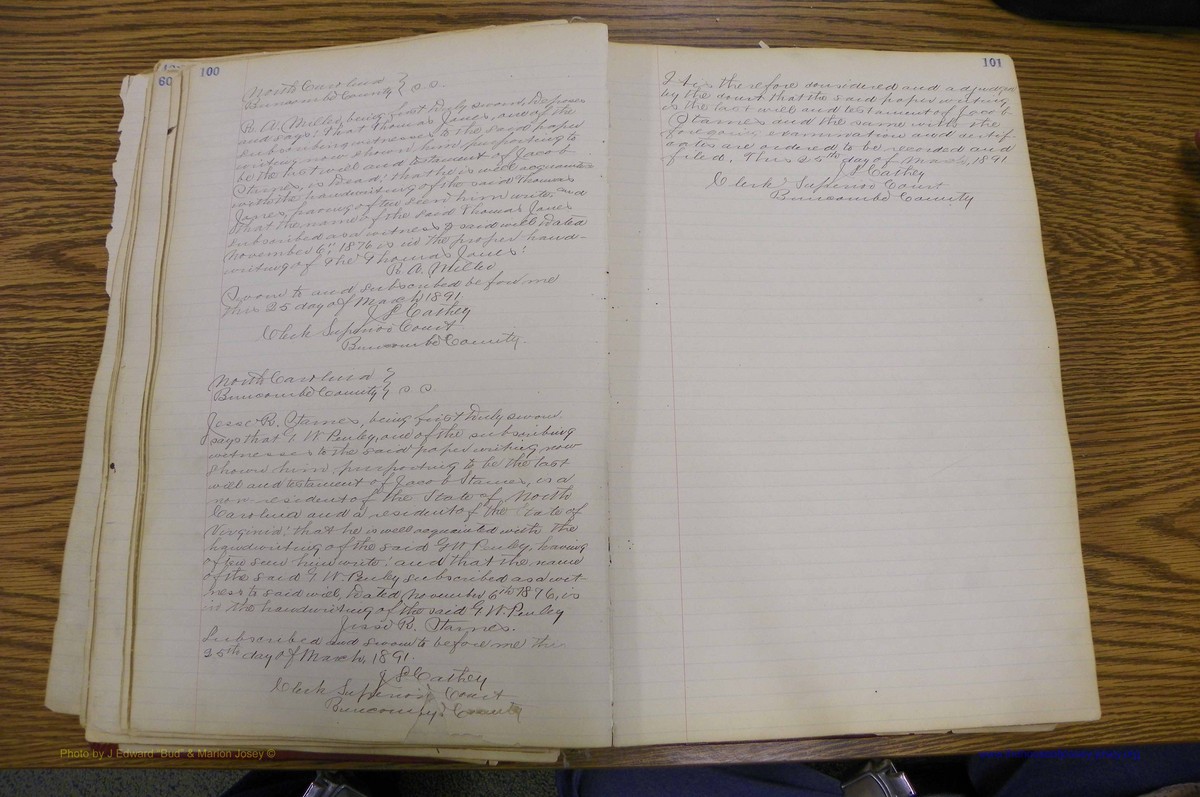 100
60
North Carolina }
Buncombe County } S.S.
R. A. Miller, being first duly sworn, deposes
and says: that Thomas Jones, one of the
subscribing witnesses to the said paper
writing now shown him, purporting to
be the last will and testament of Jacob
Starnes, is dead; that he is well acquainted
with the handwriting of the said Thomas
Jones, having often seen him write, and
that the name of the said Thomas Jones
subscribed as a witness of said will, dated
November 6", 1876 is in the proper hand-
writing of the Thomas Jones.
R. A. Miller
Sworn to and subscribed before me
this 25 day of March 1891
J L Cathey
Clerk Superior Court
Buncombe County.
North Carolina }
Buncombe County } S S
Jesse R. Starnes, being first duly sworn
says that G W Penley, one of the subscribing
witnesses to the said paper writing now
shown him, purporting to be the last
will and testament of Jacob Starnes, is a
non-resident of the State of North
Carolina and a resident of the State of
Virginia; that he is well acquainted with the
handwriting of the said G W Penley, having
often seen him write; and that the name
of the said G W. Penley subscribed as a wit-
ness to said will, dated November 6th 1876, is
in the handwriting of the said G W. Penley
Jesse R. Starnes.
Subscribed and sworn to before me this
25th day of March, 1891.
J L Cathey
Clerk Superior Court
Buncombe County
101
It is therefore considered and adjudged
by the court that the said paper writing
is the last will and testament of Jacob
Starnes and the same with the
foregoing examination and certifi-
cates are ordered to be recorded and
filed. This 25th day of March, 1891
J L Cathey
Clerk Superior Court
Buncombe County
Photo by J Edward "Bud" & Marion Josey ©